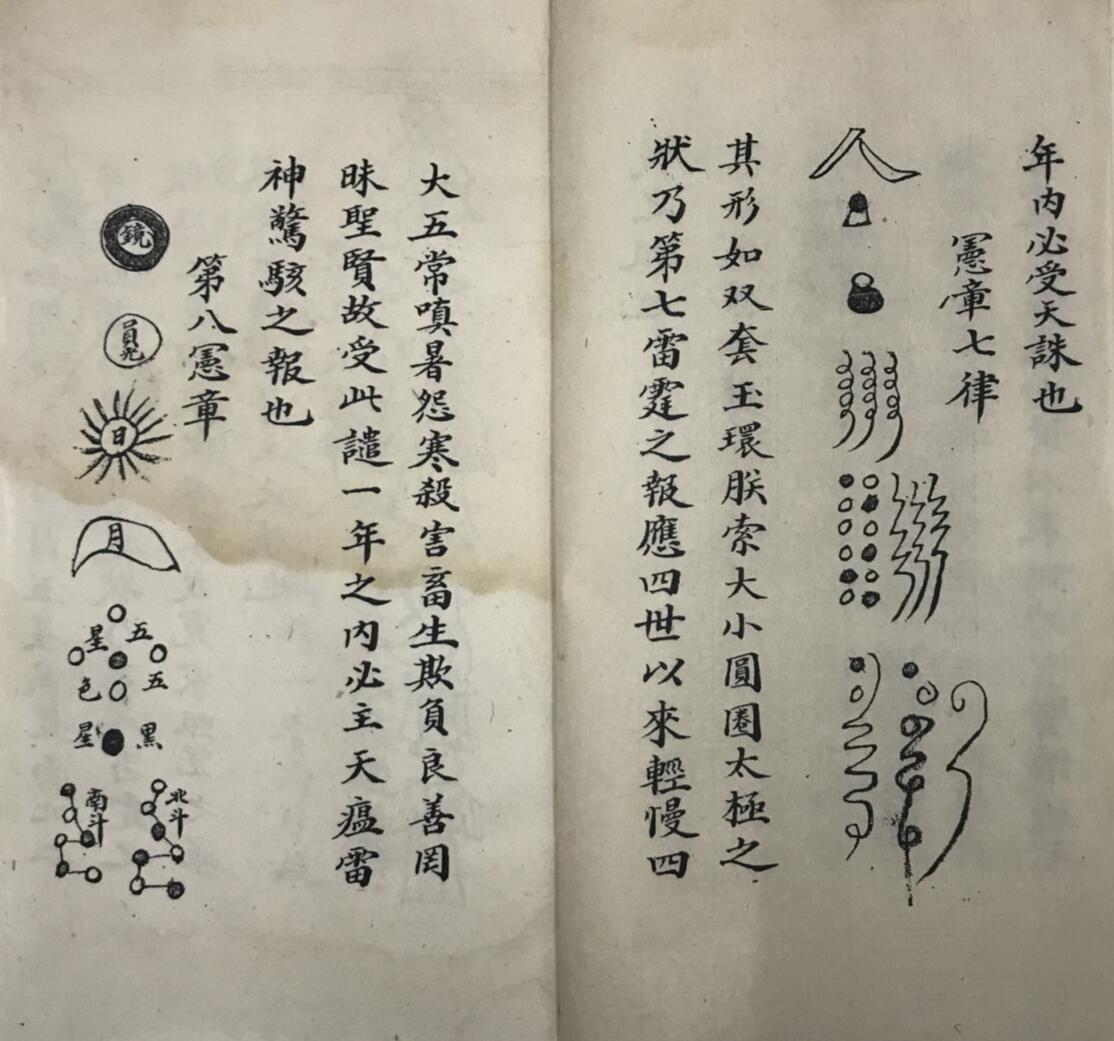 年内必受天誅也
憲章七律
其形如双套玉環朕索大小圓圈太極之
狀乃第七雷霆之報應四世以來輕慢四
大五常嗔暑怨寒殺害畜生欺負良善罔
昧聖賢故受此譴一年之内必主天瘟雷
神驚駭之報也
第八憲章
鏡
員光
日
月
五星
五色
黑星
北斗
南斗